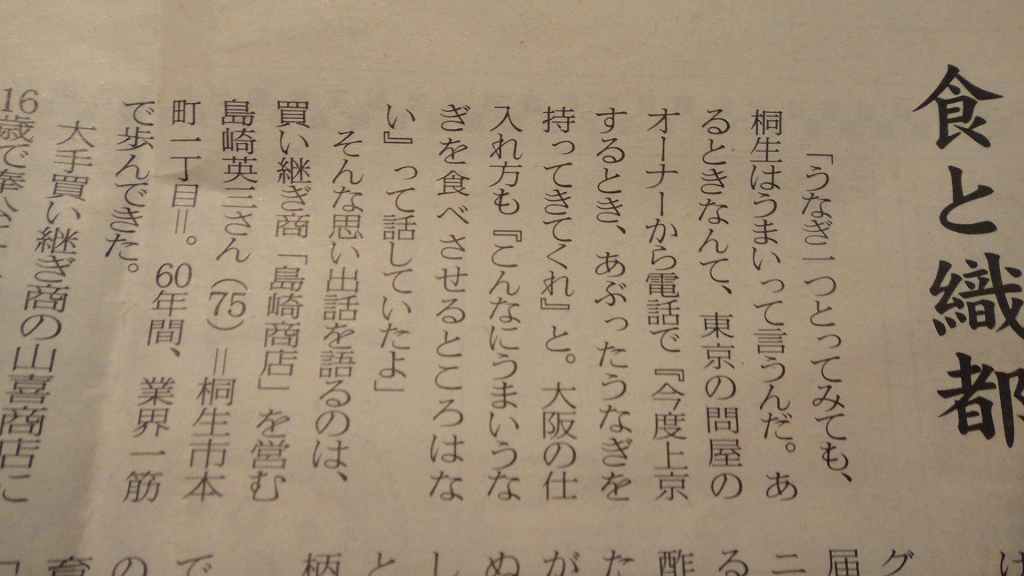 食と織都
「うなぎ一つとってみても、
桐生はうまいって言うんだ。あ
るときなんて、東京の問屋の
オーナーから電話で『今度上京
するとき、あぶったうなぎを
持ってきてくれ』と。大阪の仕
入れ方も『こんなにうまいうな
ぎを食べさせるところはな
い』って話していたよ」
そんな思い出話を語るのは、
買い継ぎ商「島崎商店」を営む
島崎英三さん(75)＝桐生市本
町一丁目＝。60年間、業界一筋
で歩んできた。
大手買い継ぎ商の山喜商店に
16歳で奉公
は
グ
届
ニ
酢
る
た
が
ぬ
し
と
柄
で
の
育
「